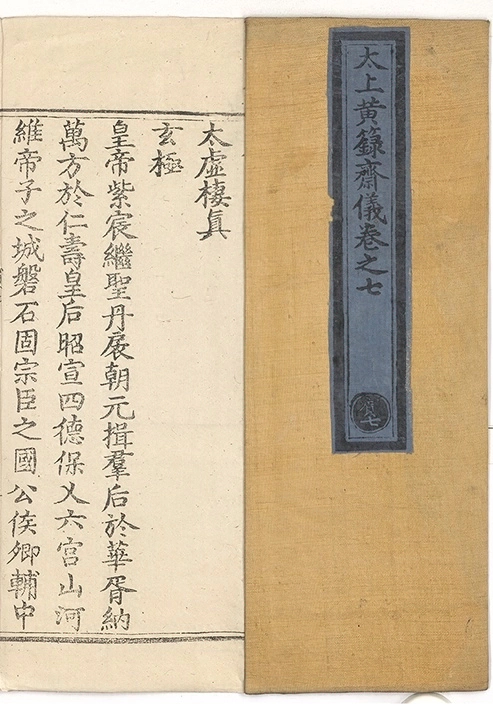 太上黄籙齋儀卷之七
貞七
太虛棲眞
玄極
皇帝紫宸繼聖丹扆朝元揖羣后於華胥納
萬方於仁壽皇后昭宣四德保乂六宮山河
維帝子之城磐石固宗臣之國公侯卿輔中